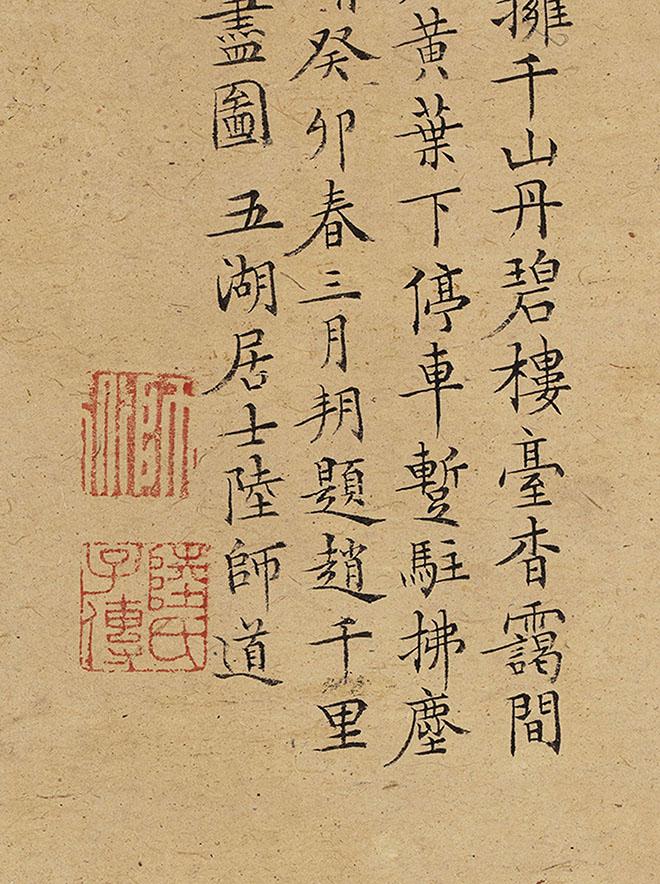 擁千山丹碧樓臺杳靄間
黃葉下停車暫駐拂塵
癸卯春三月朔題趙千里
畫圖 五湖居士陸師道
陸氏
子傳